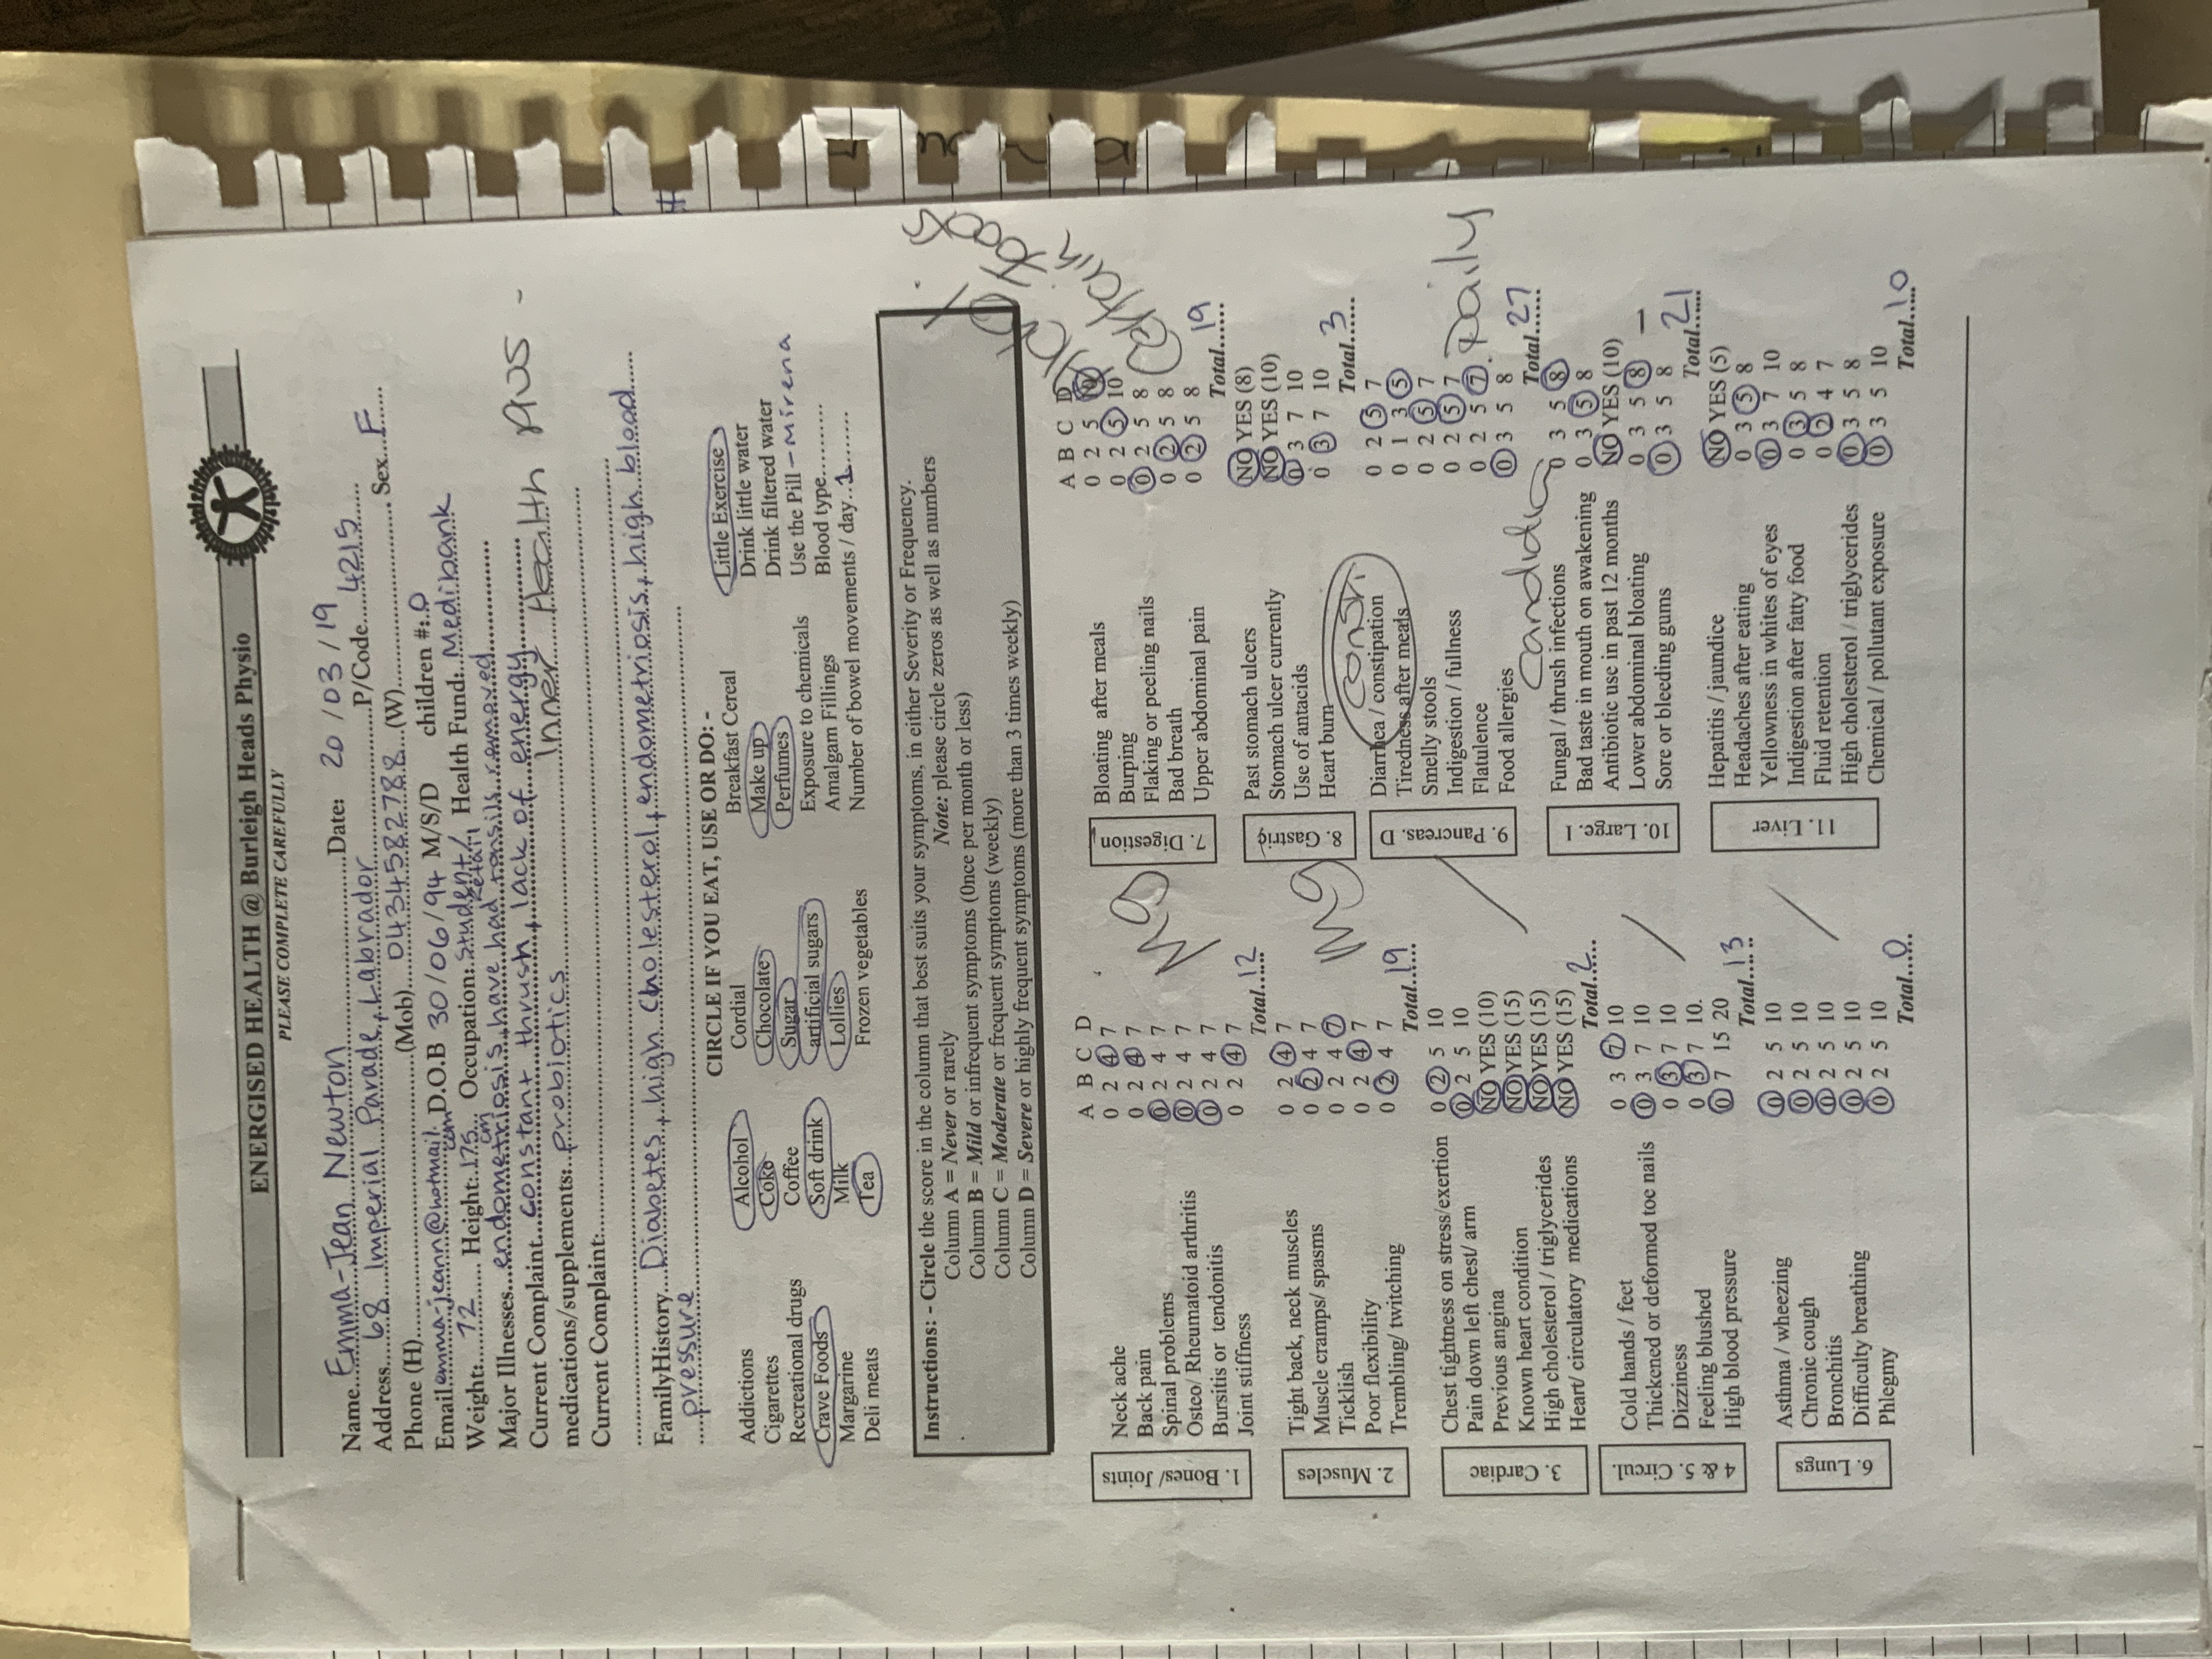 ENERGISED HEALTH @ Burleigh Heads Physio
PLEASE COMPLETE CAREFULLY
Name....Emma-Jean Newton....Date: 20/03/19
Address....68 Imperial Parade, Labrador....P/Code....4215....
Phone (H)....(Mob)....0434582788....(W)....Sex...F....
Email emma-jeann@hotmail.com D.O.B 30/06/94 M/S/D children #:.0
Weight:....72.... Height:.175 cm... Occupation:.Student/retail Health Fund:.Medibank
Major Illnesses...endometriosis, have had tonsils removed....
Current Complaint...constant thrush, lack of energy....
medications/supplements:.probiotics.... Inner Health Plus -
Current Complaint:....
FamilyHistory....Diabetes, high cholesterol, endometriosis, high blood
pressure....
CIRCLE IF YOU EAT, USE OR DO: -
Addictions Alcohol Cordial Breakfast Cereal Little Exercise
Cigarettes Coke Chocolate Make up Drink little water
Recreational drugs Coffee Sugar Perfumes Drink filtered water
Crave Foods Soft drink artificial sugars Exposure to chemicals Use the Pill - Mirena
Margarine Milk Lollies Amalgam Fillings Blood type....
Deli meats Tea Frozen vegetables Number of bowel movements / day..1....
Instructions: - Circle the score in the column that best suits your symptoms, in either Severity or Frequency.
Note: please circle zeros as well as numbers
Column A = Never or rarely
Column B = Mild or infrequent symptoms (Once per month or less)
Column C = Moderate or frequent symptoms (weekly)
Column D = Severe or highly frequent symptoms (more than 3 times weekly)
A B C D
1. Bones/ Joints
Neck ache 0 2 4 7
Back pain 0 2 4 7
Spinal problems 0 2 4 7
Osteo/ Rheumatoid arthritis 0 2 4 7
Bursitis or tendonitis 0 2 4 7
Joint stiffness 0 2 4 7
Total...12....
Mg
2. Muscles
Tight back, neck muscles 0 2 4 7
Muscle cramps/ spasms 0 2 4 7
Ticklish 0 2 4 7
Poor flexibility 0 2 4 7
Trembling/ twitching 0 2 4 7
Total..19....
Mg
3. Cardiac
Chest tightness on stress/exertion 0 2 5 10
Pain down left chest/ arm 0 2 5 10
Previous angina NO YES (10)
Known heart condition NO YES (15)
High cholesterol / triglycerides NO YES (15)
Heart/ circulatory medications NO YES (15)
Total..2....
4 & 5. Circul.
Cold hands / feet 0 3 7 10
Thickened or deformed toe nails 0 3 7 10
Dizziness 0 3 7 10
Feeling blushed 0 3 7 10.
High blood pressure 0 7 15 20
Total..13....
6. Lungs
Asthma / wheezing 0 2 5 10
Chronic cough 0 2 5 10
Bronchitis 0 2 5 10
Difficulty breathing 0 2 5 10
Phlegmy 0 2 5 10
Total...0....
A B C D
7. Digestion
Bloating after meals 0 2 5 10
Burping 0 2 5 10
Flaking or peeling nails 0 2 5 8
Bad breath 0 2 5 8
Upper abdominal pain 0 2 5 8
Total..19....
certain
foods
8. Gastric
Past stomach ulcers NO YES (8)
Stomach ulcer currently NO YES (10)
Use of antacids 0 3 7 10
Heart burn 0 3 7 10
Total..3....
Consti.
9. Pancreas. D
Diarrhea / constipation 0 2 5 7
Tiredness after meals 0 1 3 5
Smelly stools 0 2 5 7
Indigestion / fullness 0 2 5 7
Flatulence 0 2 5 7 Daily
Food allergies 0 3 5 8
Total..27....
Candida
10. Large. I
Fungal / thrush infections 0 3 5 8
Bad taste in mouth on awakening 0 3 5 8
Antibiotic use in past 12 months NO YES (10)
Lower abdominal bloating 0 3 5 8 -
Sore or bleeding gums 0 3 5 8
Total..21....
11. Liver
Hepatitis / jaundice NO YES (5)
Headaches after eating 0 3 5 8
Yellowness in whites of eyes 0 3 7 10
Indigestion after fatty food 0 3 5 8
Fluid retention 0 2 4 7
High cholesterol / triglycerides 0 3 5 8
Chemical / pollutant exposure 0 3 5 10
Total..10....